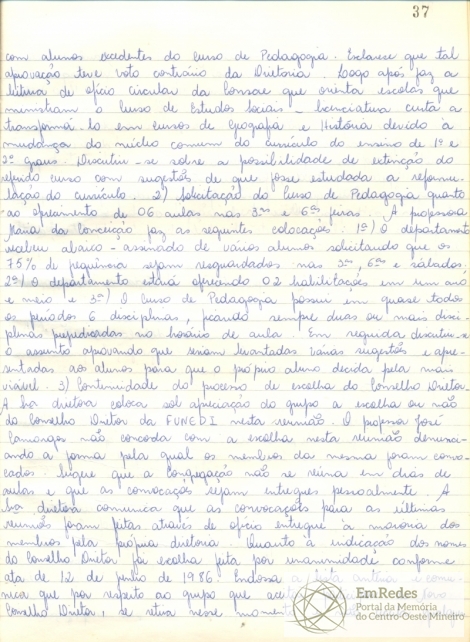 37
com alunos excedentes do curso de Pedagogia. Esclarece que tal
aprovação teve voto contrário da Diretoria. Logo após faz a
leitura de ofício circular da que orienta escolas que
ministram o curso de Estudos Sociais - licenciatura curta a
transformá-lo em cursos de Geografia e História devido à
mudança do núcleo comum do currículo do ensino de 1º e
2º graus. Discutiu-se sobre a possibilidade de extinção do
referido curso com sugestões de que fosse estudada a reformu-
lação do currículo. 2) Solicitação do Curso de Pedagogia quanto
ao oferecimento de 06 aulas nas 3as e 6as feiras. A professora
Maria da Conceição faz as seguintes colocações: 1º) O departamento
recebeu abaixo-assinado de vários alunos solicitando que os
75% de frequência sejam resguardados nas 3as, 6as e sábados.
2º) O departamento estará oferecendo 02 habilitações em um ano
e meio e 3º) O Curso de Pedagogia possui em quase todos
os períodos 6 disciplinas, ficando sempre duas ou mais disci-
plinas prejudicadas no horário de aula. Em seguida discutiu-se
o assunto aprovando que seriam levantadas várias sugestões e apre-
sentadas aos alunos para que o próprio aluno decida pela mais
viável. 3) Continuidade do processo de escolha do Conselho Diretor.
A Sra diretora coloca sob apreciação do grupo a escolha ou não
do Conselho Diretor da FUNEDI nesta reunião. O professor José
Camargos não concorda com a escolha nesta reunião denunci-
ando a forma pela qual os membros da mesma foram convo-
cados. que a Congregação não se reúna em dias de
aulas e que as convocações sejam entregues pessoalmente. A
Sra diretora comunica que as convocações para as últimas
reuniões foram feitas através de ofício entregue à maioria dos
membros pela própria diretoria. Quanto à indicação dos nomes
do Conselho Diretor foi escolha feita por unanimidade conforme
ata de 12 de junho de 1986. Endossa a e comu-
nica que por respeito ao grupo que
Conselho Diretor, se retira nesse momento
EmRedes
Portal da Memória
do Centro-Oeste Mineiro